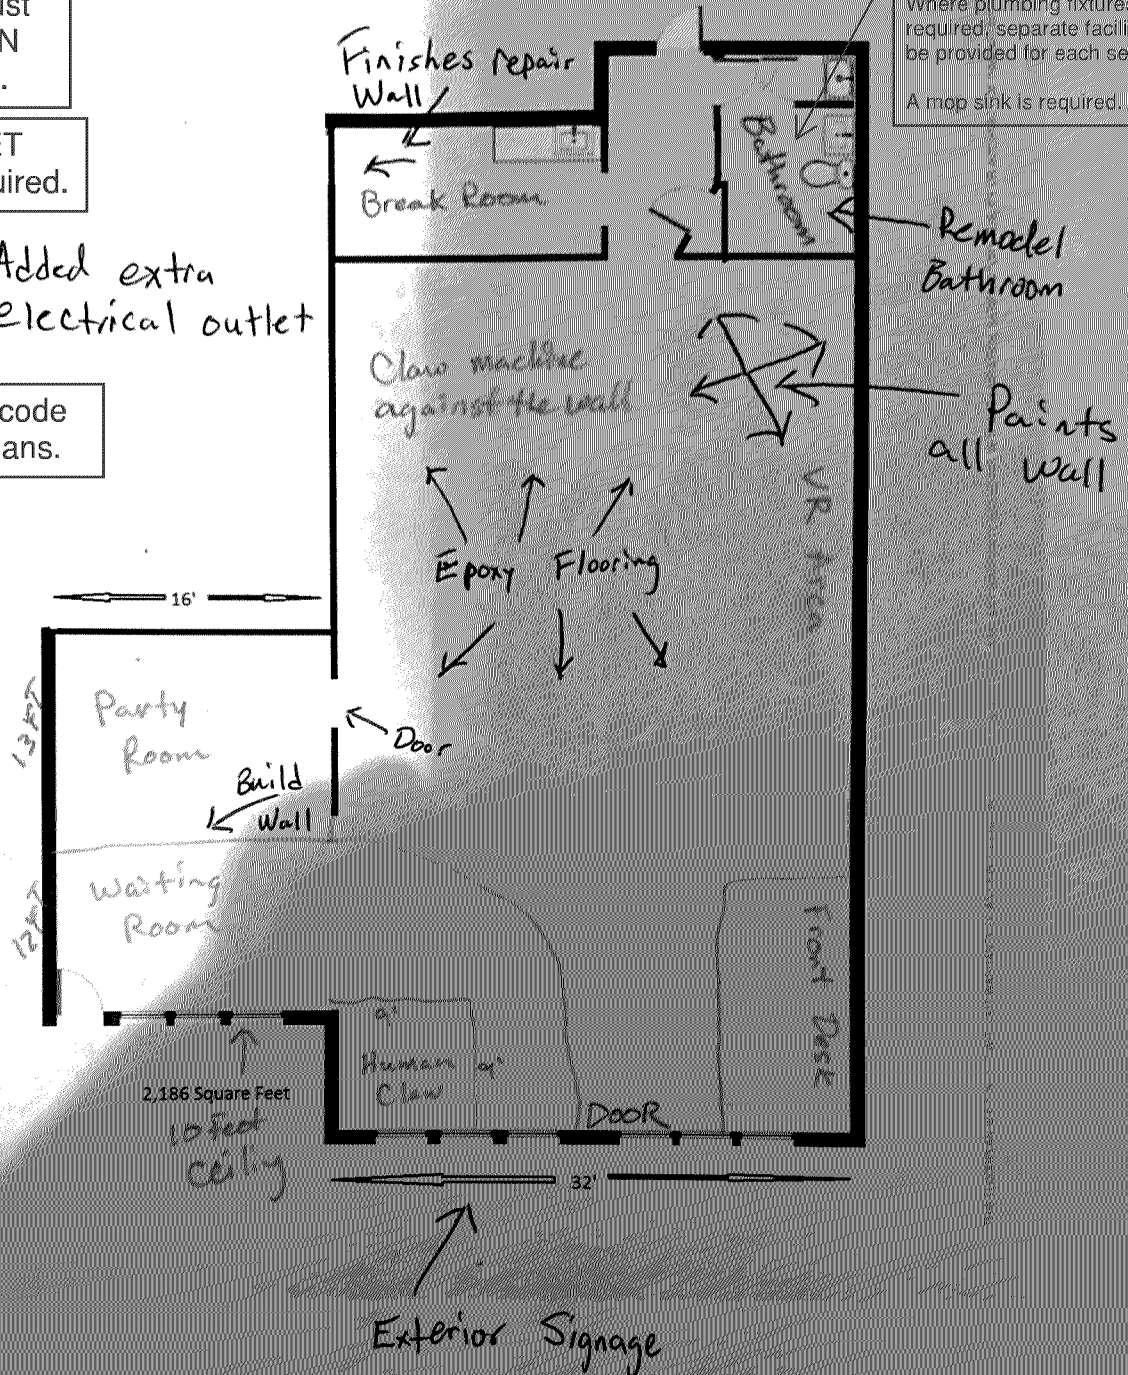 ust
N
.
ET
uired.
Added extra
electrical outlet
code
ans.
Where plumbing fixtures
required, separate facili
be provided for each se
A mop sink is required.
Finishes repair
Wall
Break Room
Bathroom
Remodel
Bathroom
Claw machine
against the wall
Paints
all Wall
VR Area
Epoxy Flooring
16'
13 FT
Party
Room
Door
Build
Wall
12 FT
Waiting
Room
Front Desk
9'
Human 9'
Claw
2,186 Square Feet
10 feet
ceiling
DOOR
32'
Exterior Signage